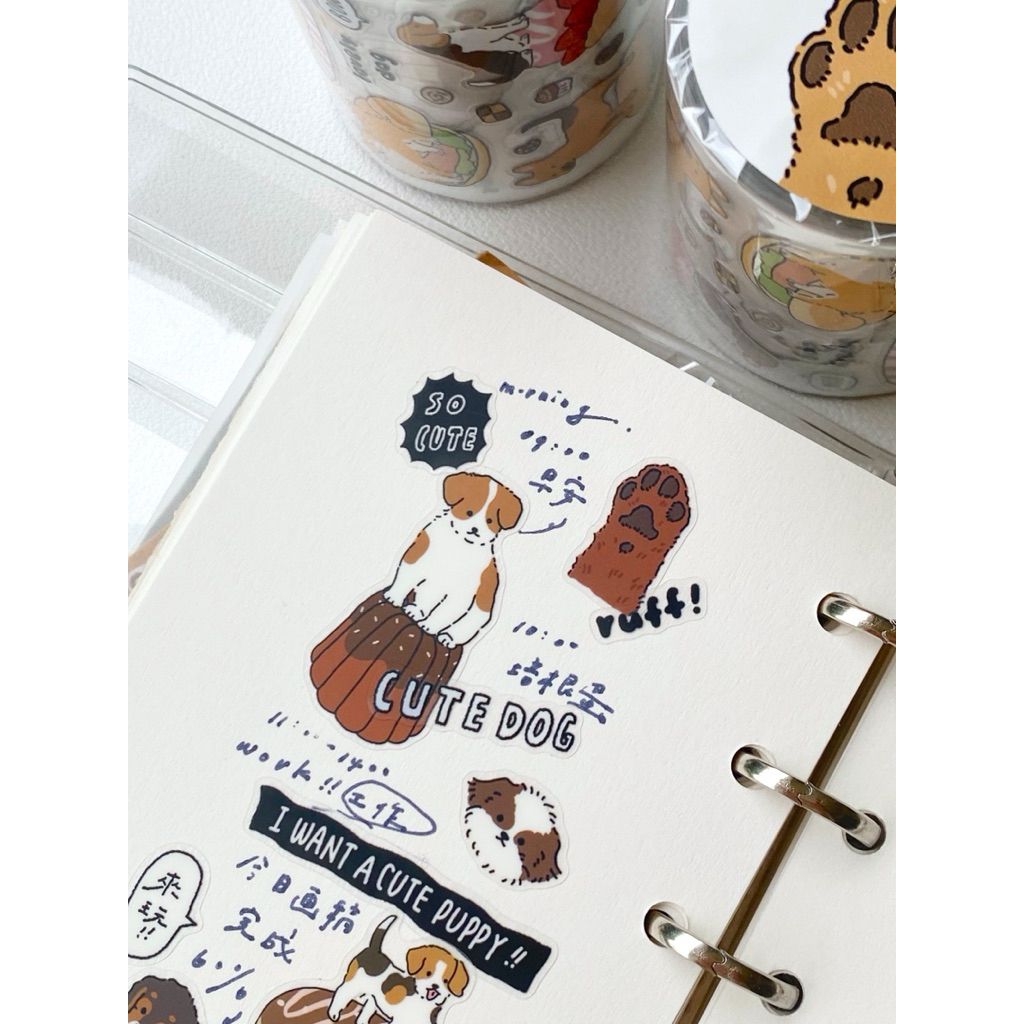 SO
CUTE
morning.
09:00
早安
ruff!
10:00
培根蛋
CUTE DOG
11:00-1400
work!!
工作
I WANT A CUTE PUPPY!!
來
玩!!
今日画稿
完成
60%